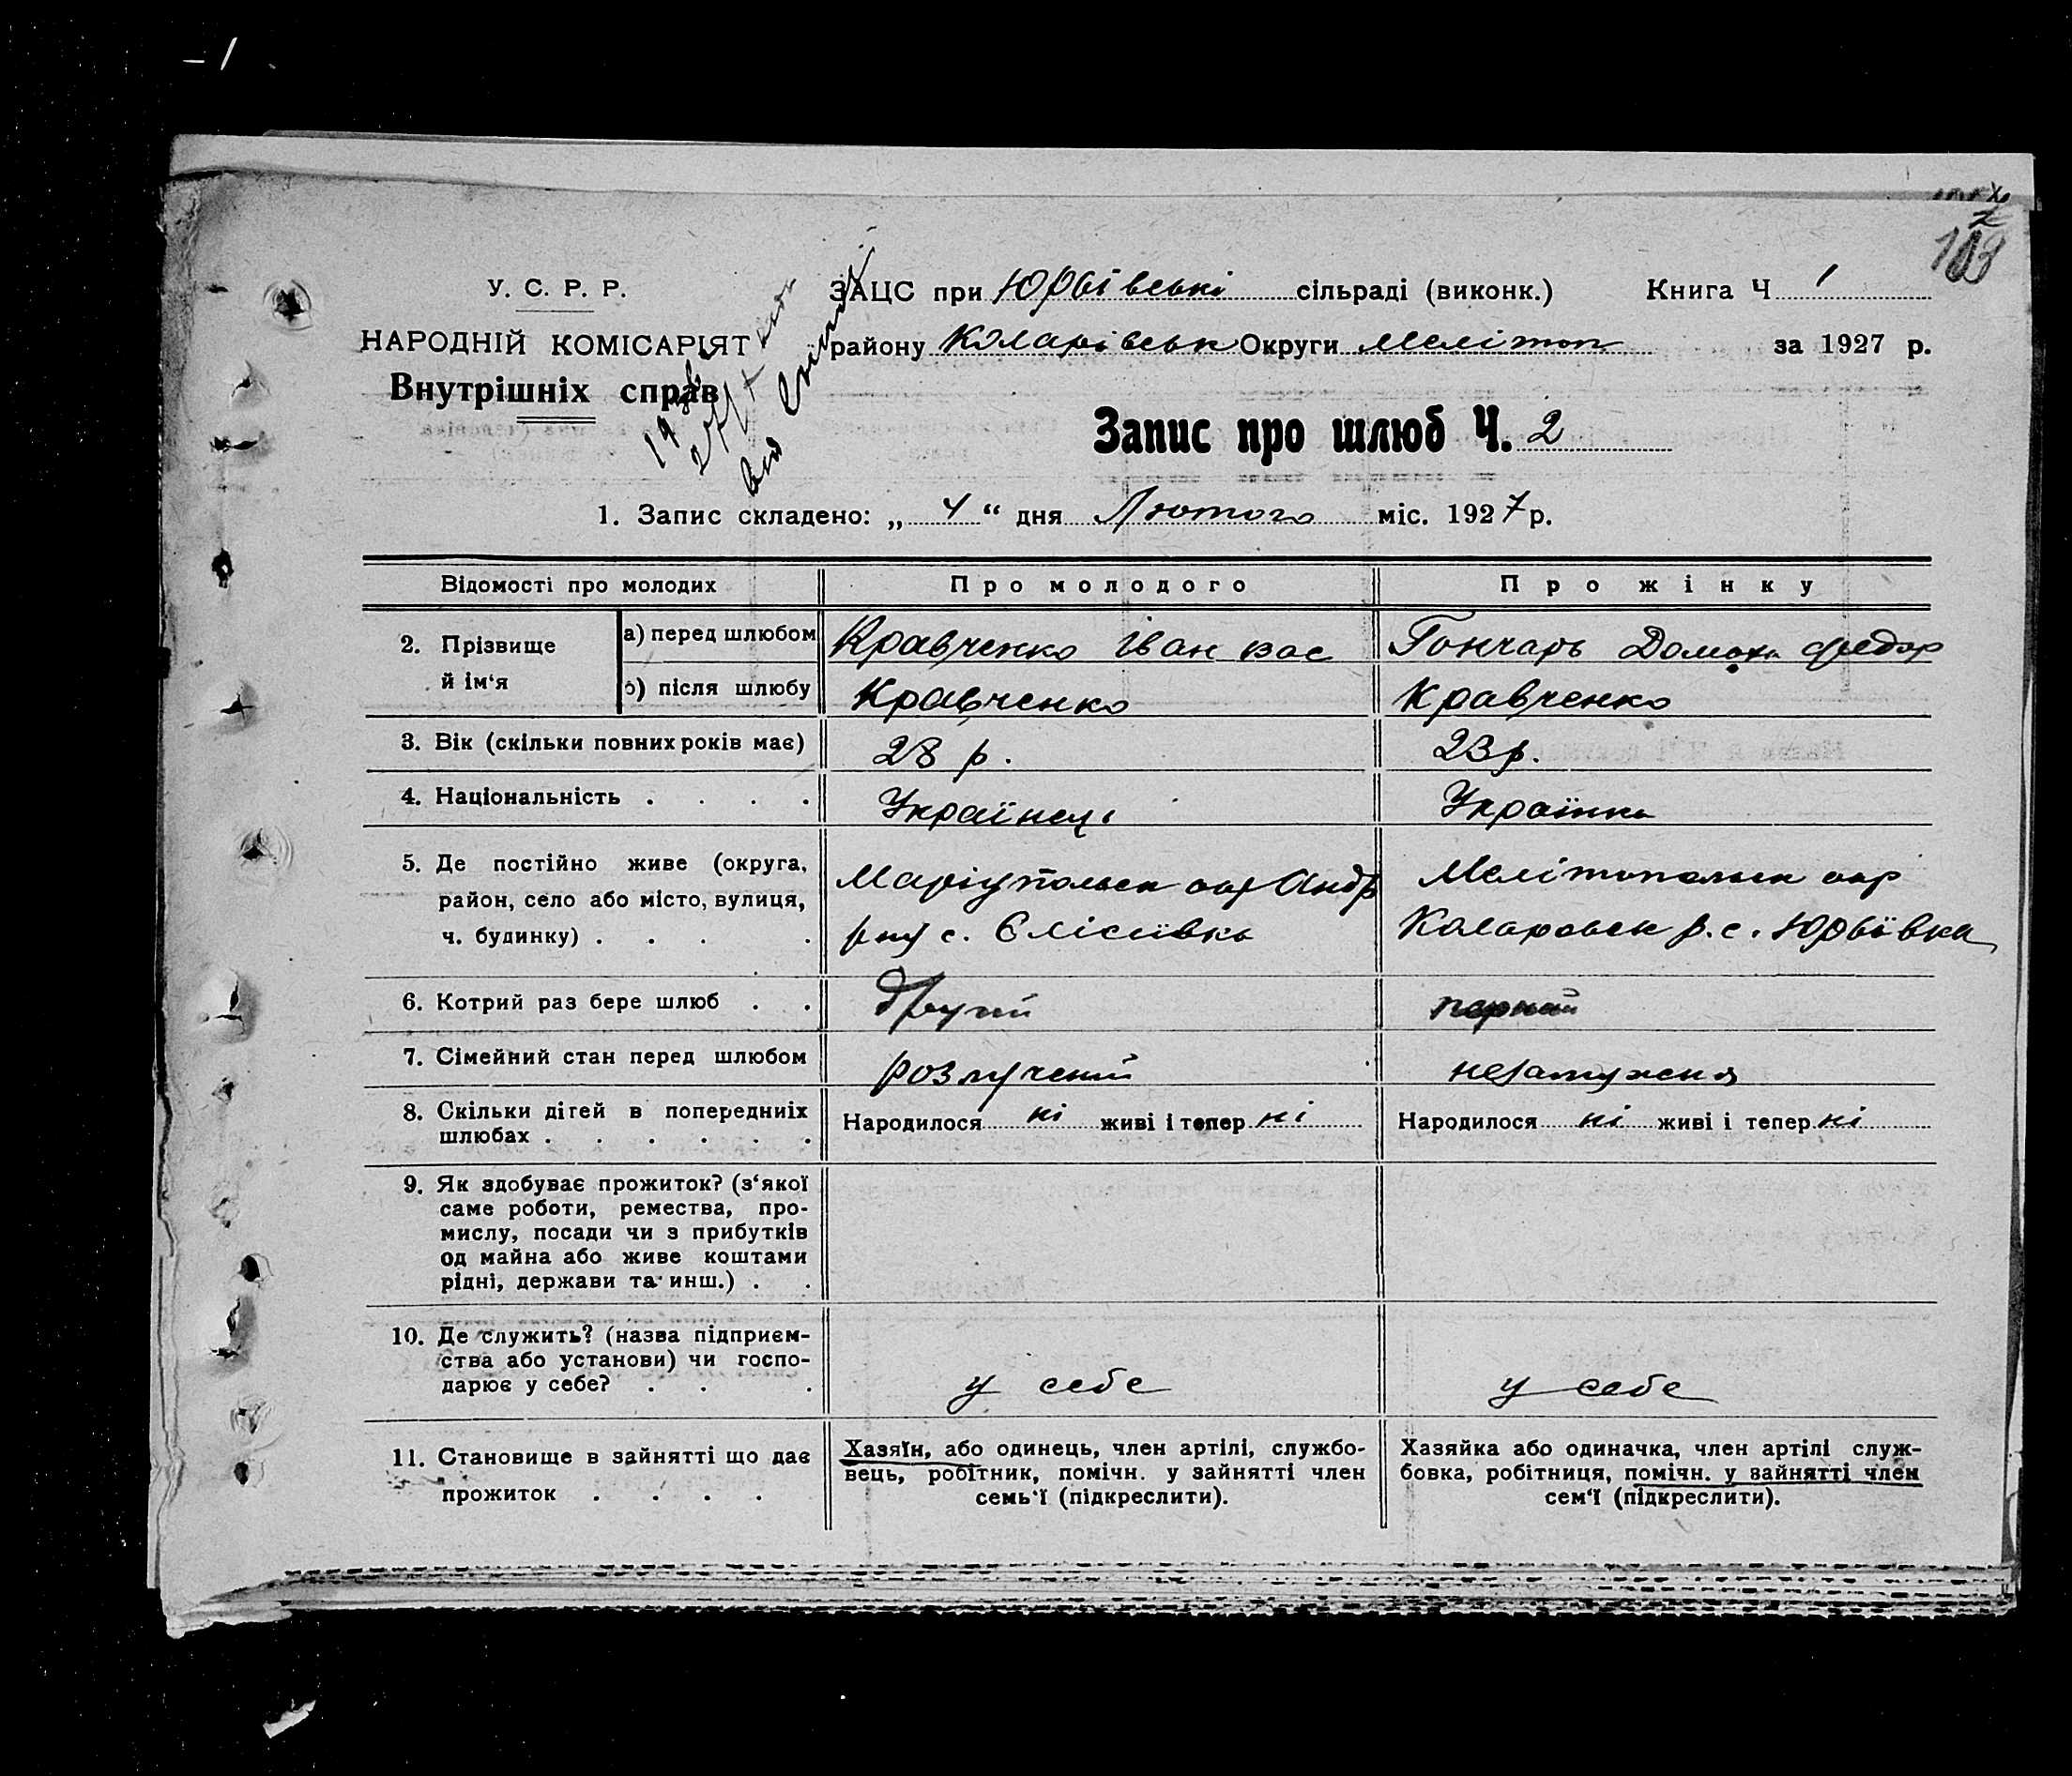 У. С. Р. Р.
НАРОДНІЙ КОМІСАРІЯТ
Внутрішніх справ
ЗАЦС при Юрьївські сільраді (виконк.) Книга Ч 1
району Коларівськ Округи Мелітоп за 1927 р.
Запис про шлюб Ч. 2
1. Запис складено: „ 4 “ дня Лютого міс. 1927 р.
Відомості про молодих Про молодого Про жінку
2. Прізвище й ім‘я
а) перед шлюбом Кравченко Іван вас Гончарь Домаха федор
б) після шлюбу Кравченко Кравченко
3. Вік (скільки повних років має) 28 р. 23 р.
4. Національність . . . . Українець Українка
5. Де постійно живе (округа, Маріупольск окр Андр Мелітопольск окр
район, село або місто, вулиця,
ч. будинку) . . . . с. Єлісіївка Коларовск р. с. Юрьївка
6. Котрий раз бере шлюб . . Другий перший
7. Сімейний стан перед шлюбом розлучений незамужня
8. Скільки дітей в попередниіх Народилося ні живі і тепер ні Народилося ні живі і тепер ні
шлюбах . . . . . .
9. Як здобуває прожиток? (з‘якої
саме роботи, ремества, про-
мислу, посади чи з прибутків
од майна або живе коштами
рідні, держави та инш.) . .
10. Де служить? (назва підприєм-
ства або установи) чи госпо-
дарює у себе? . . . у себе у себе
11. Становище в зайнятті що дає
прожиток . . . .
Хазяїн, або одинець, член артілі, службо-
вець, робітник, помічн. у зайнятті член
семь‘ї (підкреслити).
Хазяйка або одиначка, член артілі служ-
бовка, робітниця, помічн. у зайнятті член
сем‘ї (підкреслити).